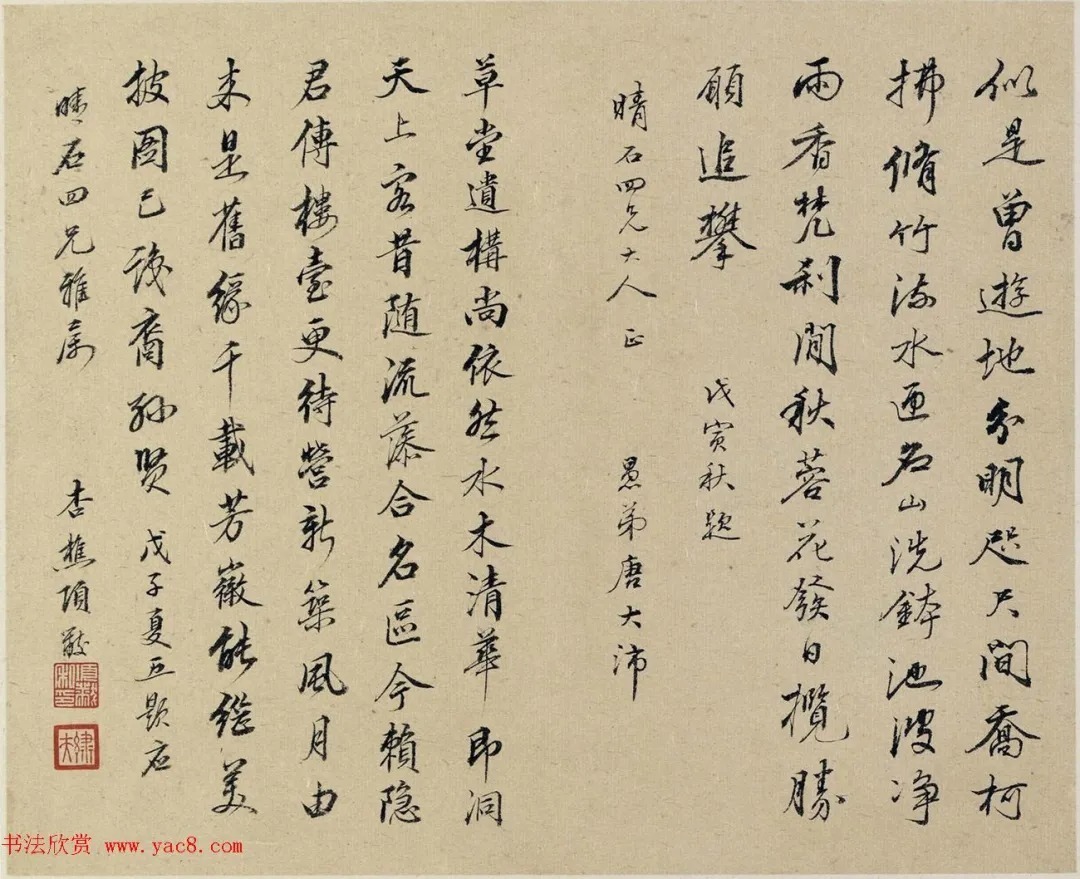 似是曾遊地分明咫尺間喬柯
拂脩竹流水逕名山洗鉢池波净
雨香梵刹閒秋蓉花發日攬勝
願追攀
戊寅秋題
晴石四兄大人 正
愚弟唐大沛
草堂遺構尚依然水木清華即洞
天上客昔随流藻合名區今賴隐
君傳樓臺更待營新築風月由
来是舊緣千載芳徽能繼美
披圖已識裔孫贤 戊子夏五題应
晴石四兄雅属
杏樵項
书法欣赏 www.yac8.com